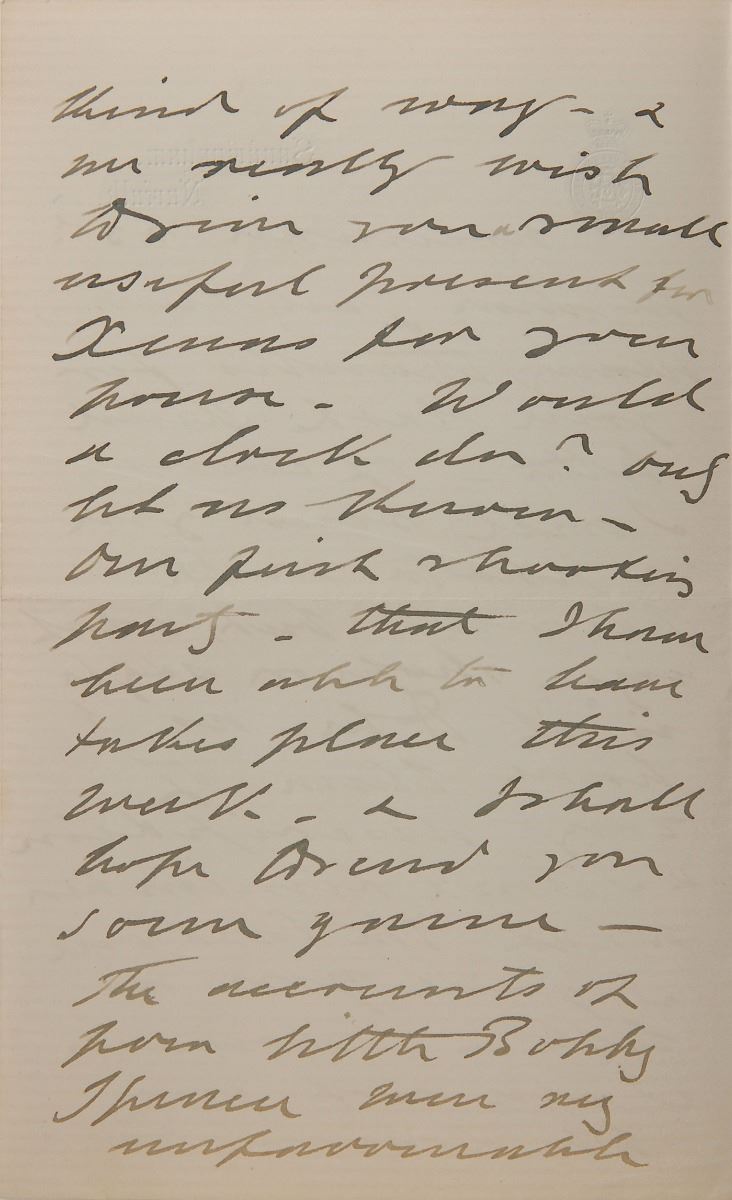 kind of way – &
we really wish
to give you a small
useful present for
Xmas for your
house – Would
a clock do? only
let us know –
Our first shooting
party – that I have
been able to have
takes place this
week – & I shall
hope to send you
some game –
The accounts of
poor little Bobby
Spencer were very
unfavourable
Sandringham,
Norfolk.